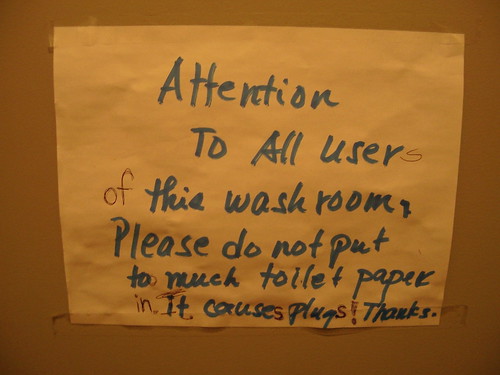 Attention
To All users
of this washroom,
Please do not put
to much toilet paper
in. It causes plugs! Thanks.